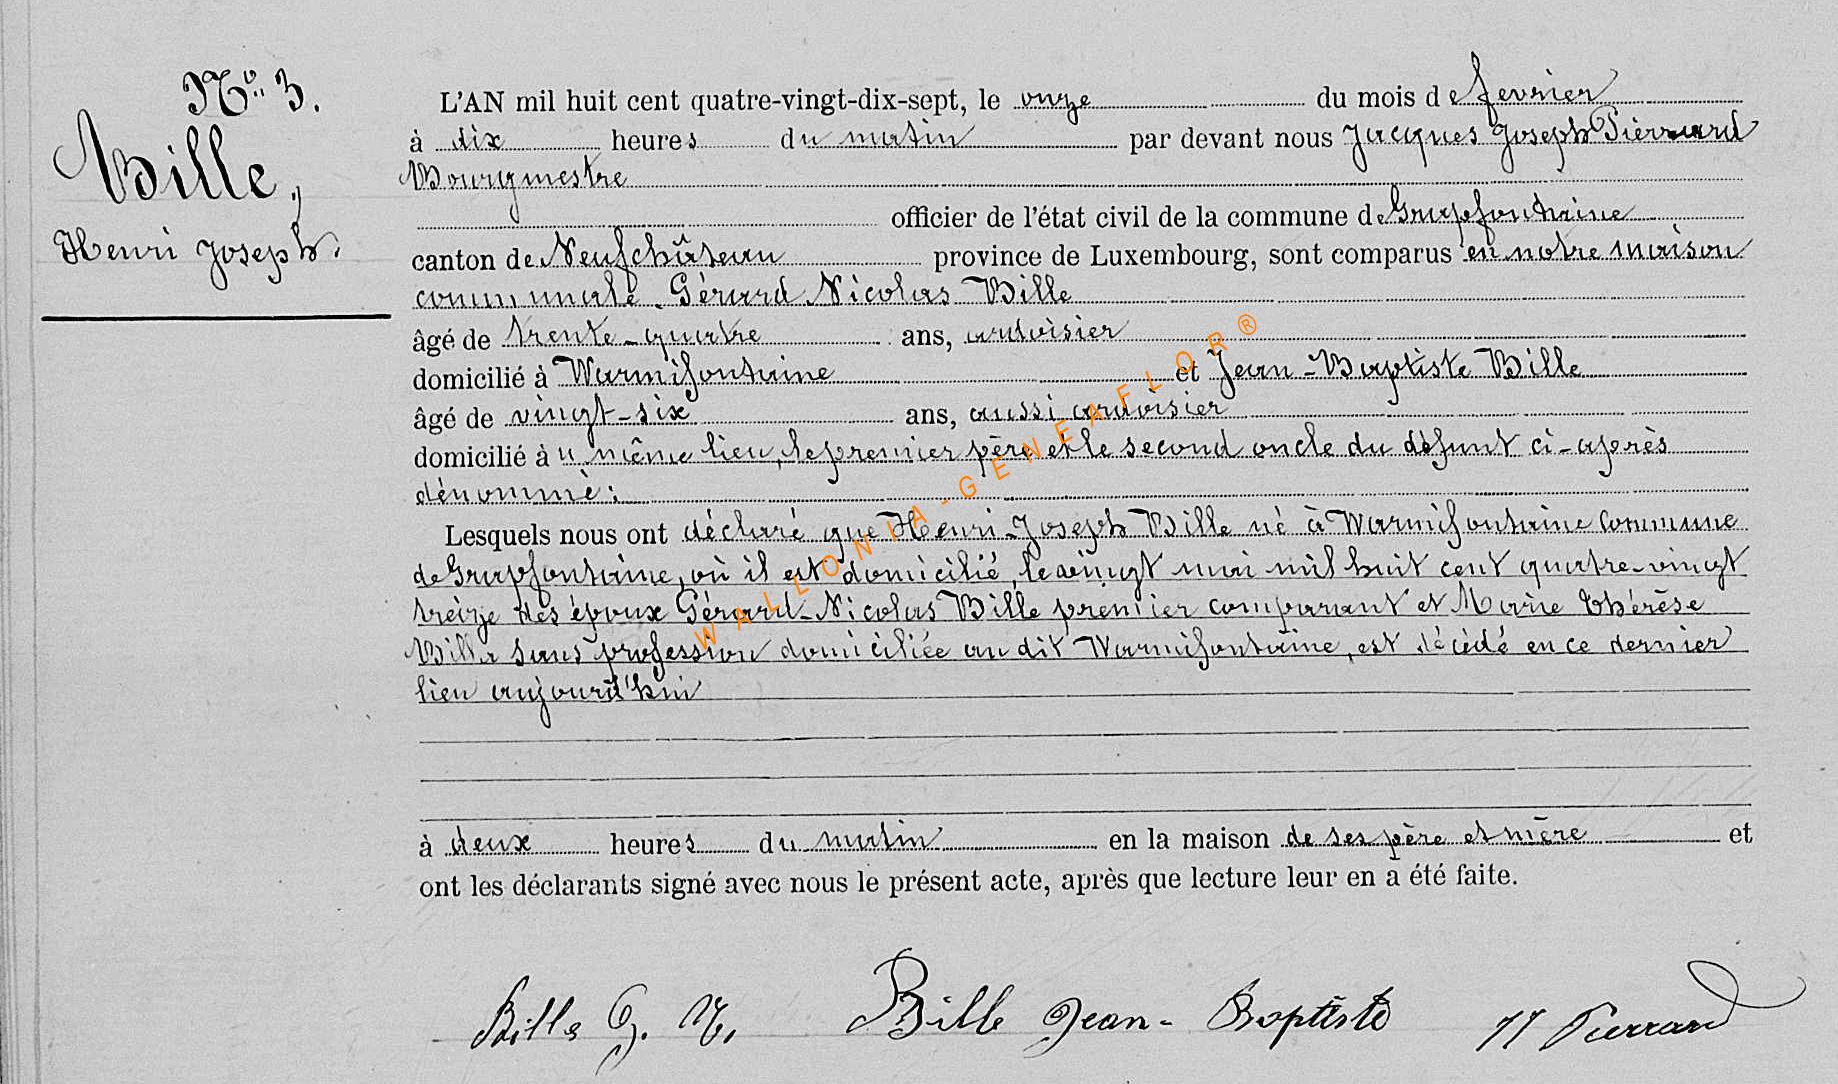 N° 3.
Bille,
Henri Joseph.
L'AN mil huit cent quatre-vingt-dix-sept, le onze du mois de fevrier
à dix heures du matin par devant nous Jacques Joseph Pierrard
Bourgmestre
officier de l'état civil de la commune de Grapfontaine
canton de Neufchâteau province de Luxembourg, sont comparus en notre maison
communale Gérard Nicolas Bille
âgé de trente-quatre ans, ardoisier
domicilié à Warmifontaine et Jean-Baptiste Bille
âgé de vingt-six ans, aussi ardoisier
domicilié au même lieu, le premier père et le second oncle du défunt ci-après
dénommé:
Lesquels nous ont déclaré que Henri-Joseph Bille né à Warmifontaine commune
de Grapfontaine, où il est domicilié, le vingt mai mil huit cent quatre-vingt
treize des époux Gérard-Nicolas Bille premier comparant et Marie Thérèse
sans profession domiciliée au dit Warmifontaine, est décédé en ce dernier
lieu aujourd'hui
à deux heures du matin en la maison de ses père et mère et
ont les déclarants signé avec nous le présent acte, après que lecture leur en a été faite.
Bille G. N. Bille Jean-Baptiste JJ Pierrard
WALLONIA-GENEAFLOR®